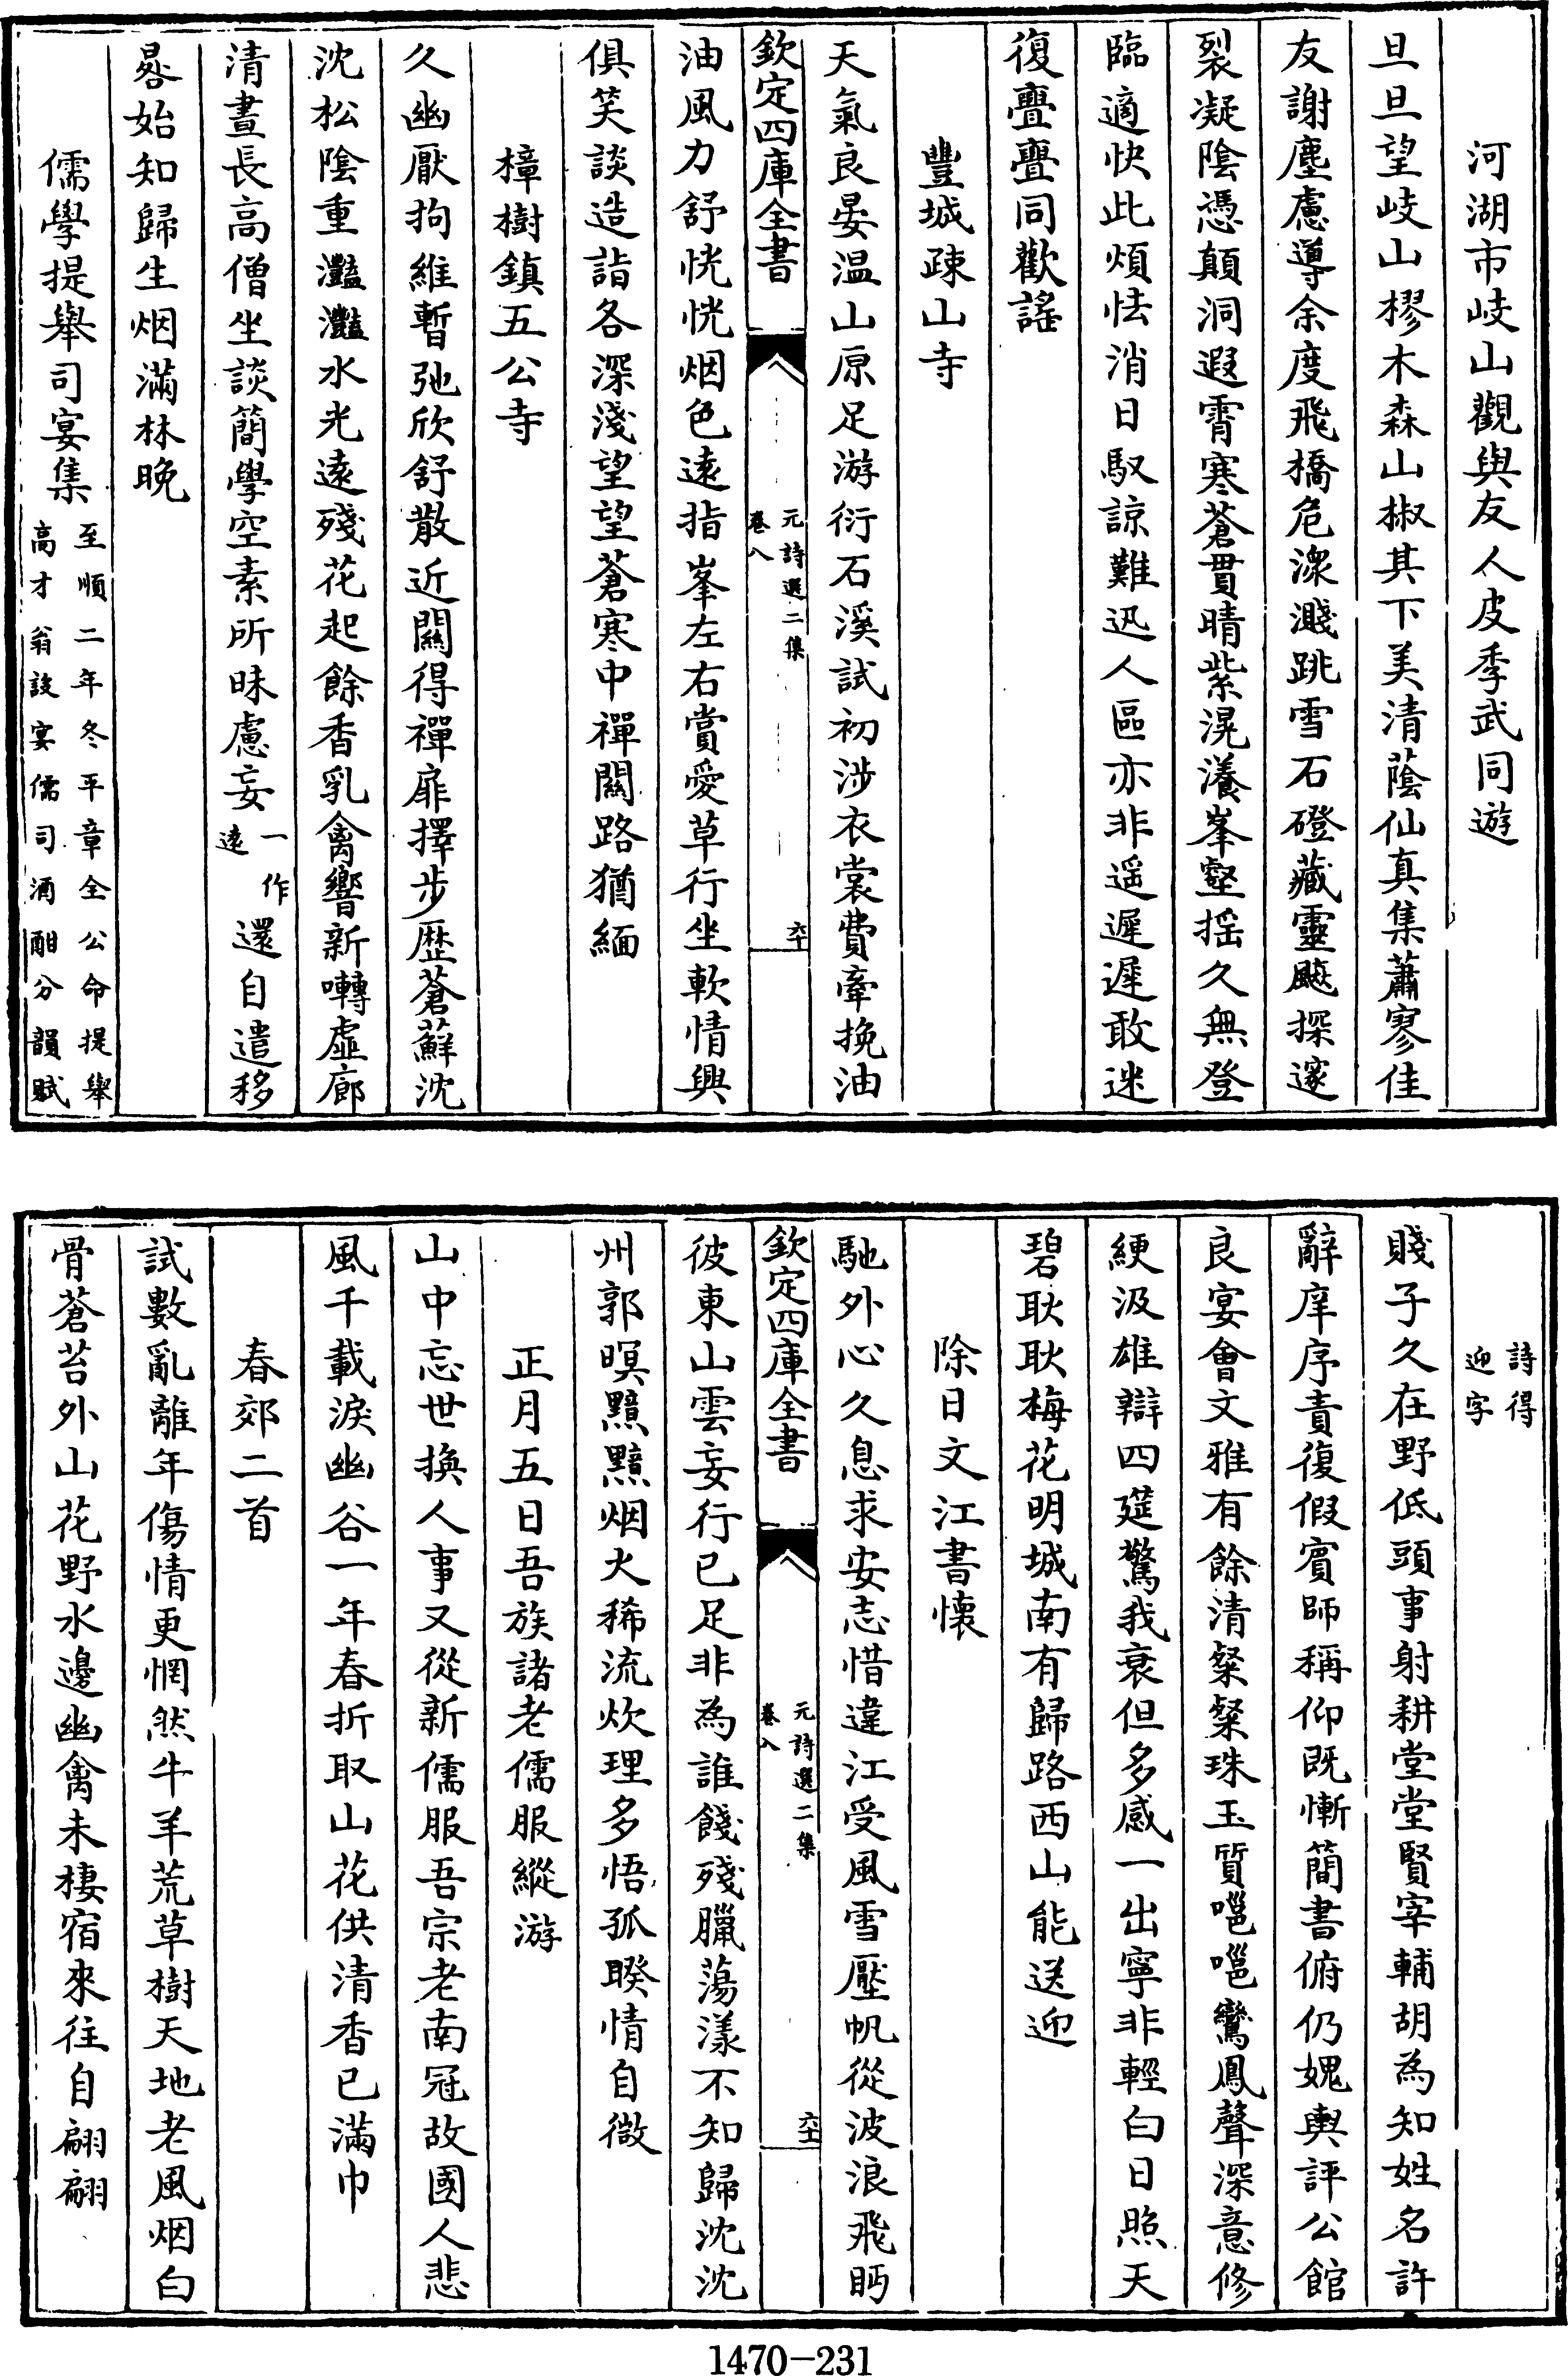 河湖市岐山觀與友人皮季武同遊
旦旦望岐山樛木森山椒其下美清蔭仙真集蕭寥佳
友謝塵慮導余度飛橋危潨濺跳雪石磴藏靈飈探邃
裂凝陰憑顛洞遐霄寒蒼貫晴紫滉瀁峯壑揺久無登
臨適快此煩怯消日馭諒難迅人區亦非遥遲遲敢迷
復亹亹同歡謠
豐城疎山寺
天氣良晏温山原足游衍石溪試初涉衣裳費牽挽油
欽定四庫全書
元詩選二集
卷八
六十
油風力舒恍恍烟色遠指峯左右賞愛草行坐軟情興
俱笑談造詣各深淺望望蒼寒中禪關路猶緬
樟樹鎮五公寺
久幽厭拘維暫弛欣舒散近闗得禪扉擇步歴蒼蘚沈
沈松陰重灩灩水光遠殘花起餘香乳禽響新囀虛廊
清晝長高僧坐談簡學空素所昧慮妄一作遠還自遣移
晷始知歸生烟滿林晚
儒學提舉司宴集至順二年冬平章全公命提舉
高才翁設宴儒司酒酣分韻賦
詩得
迎字
賤子久在野低頭事射耕堂堂賢宰輔胡為知姓名許
辭庠序責復假賓師稱仰既慚簡書俯仍媿輿評公館
良宴會文雅有餘清粲粲珠玉質嗈嗈鸞鳳聲深意修
綆汲雄辯四筵驚我衰但多感一出寧非輕白日照天
碧耿耿梅花明城南有歸路西山能送迎
除日文江書懐
馳外心久息求安志惜違江受風雪壓帆從波浪飛眄
欽定四庫全書
元詩選二集
卷八
六十
彼東山雲妄行已足非為誰餞殘臘蕩漾不知歸沈沈
州郭暝黯黯烟火稀流炊理多悟孤暌情自微
正月五日吾族諸老儒服縱游
山中忘世換人事又從新儒服吾宗老南冠故國人悲
風千載淚幽谷一年春折取山花供清香已滿巾
春郊二首
試數亂離年傷情更惘然牛羊荒草樹天地老風烟白
骨蒼苔外山花野水邊幽禽未棲宿來往自翩翩
1470-231